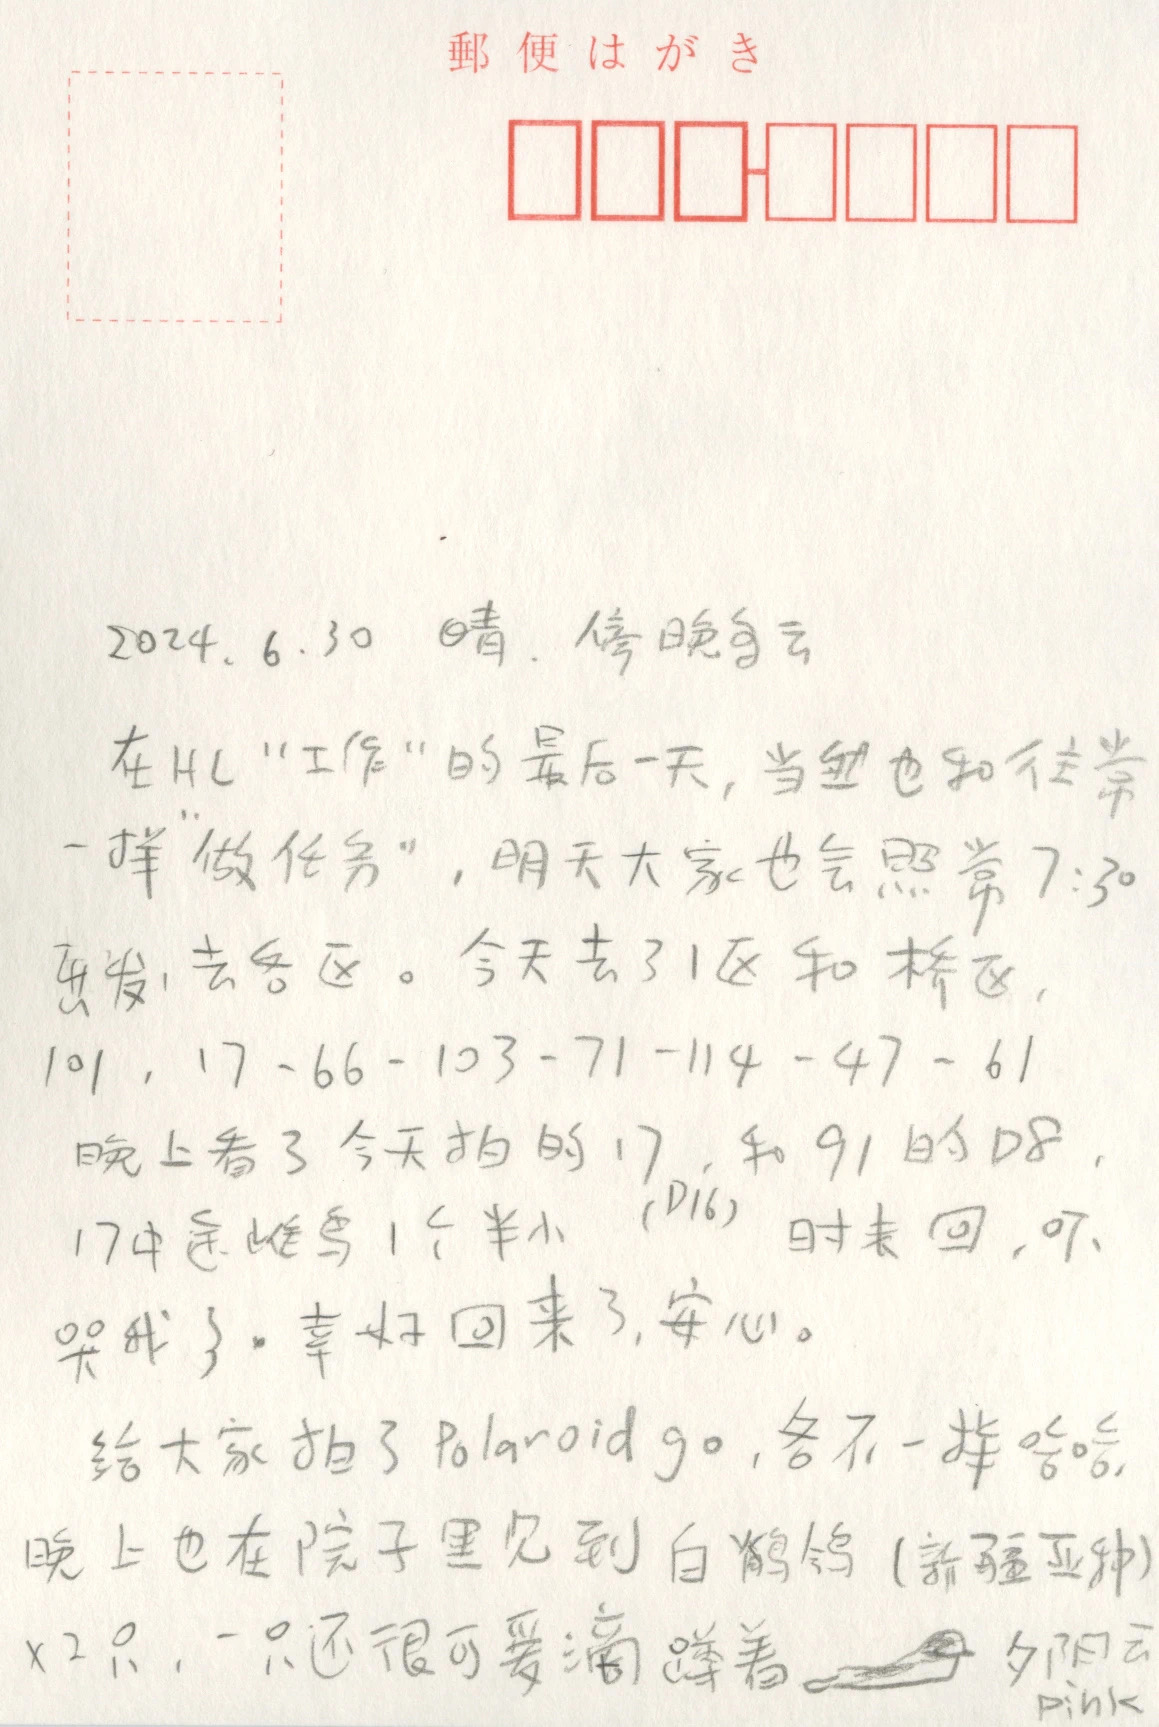 郵便はがき
2024.6.30 晴. 傍晚多云
在HL"工作"的最后一天,当然也和往常
一样"做任务",明天大家也会照常7:30
出发,去各区。今天去了1区和桥区,
101,17-66-103-71-114-47-61
晚上看了今天拍的17,和91的D8,
(D16)
17中途雌鸟1个半小时未回,吓
哭我了.幸好回来了,安心。
给大家拍了Polaroid go,各不一样哈哈,
晚上也在院子里见到白鹡鸰(新疆亚种)
x2只,一只还很可爱滴蹲着 夕阳云
pink